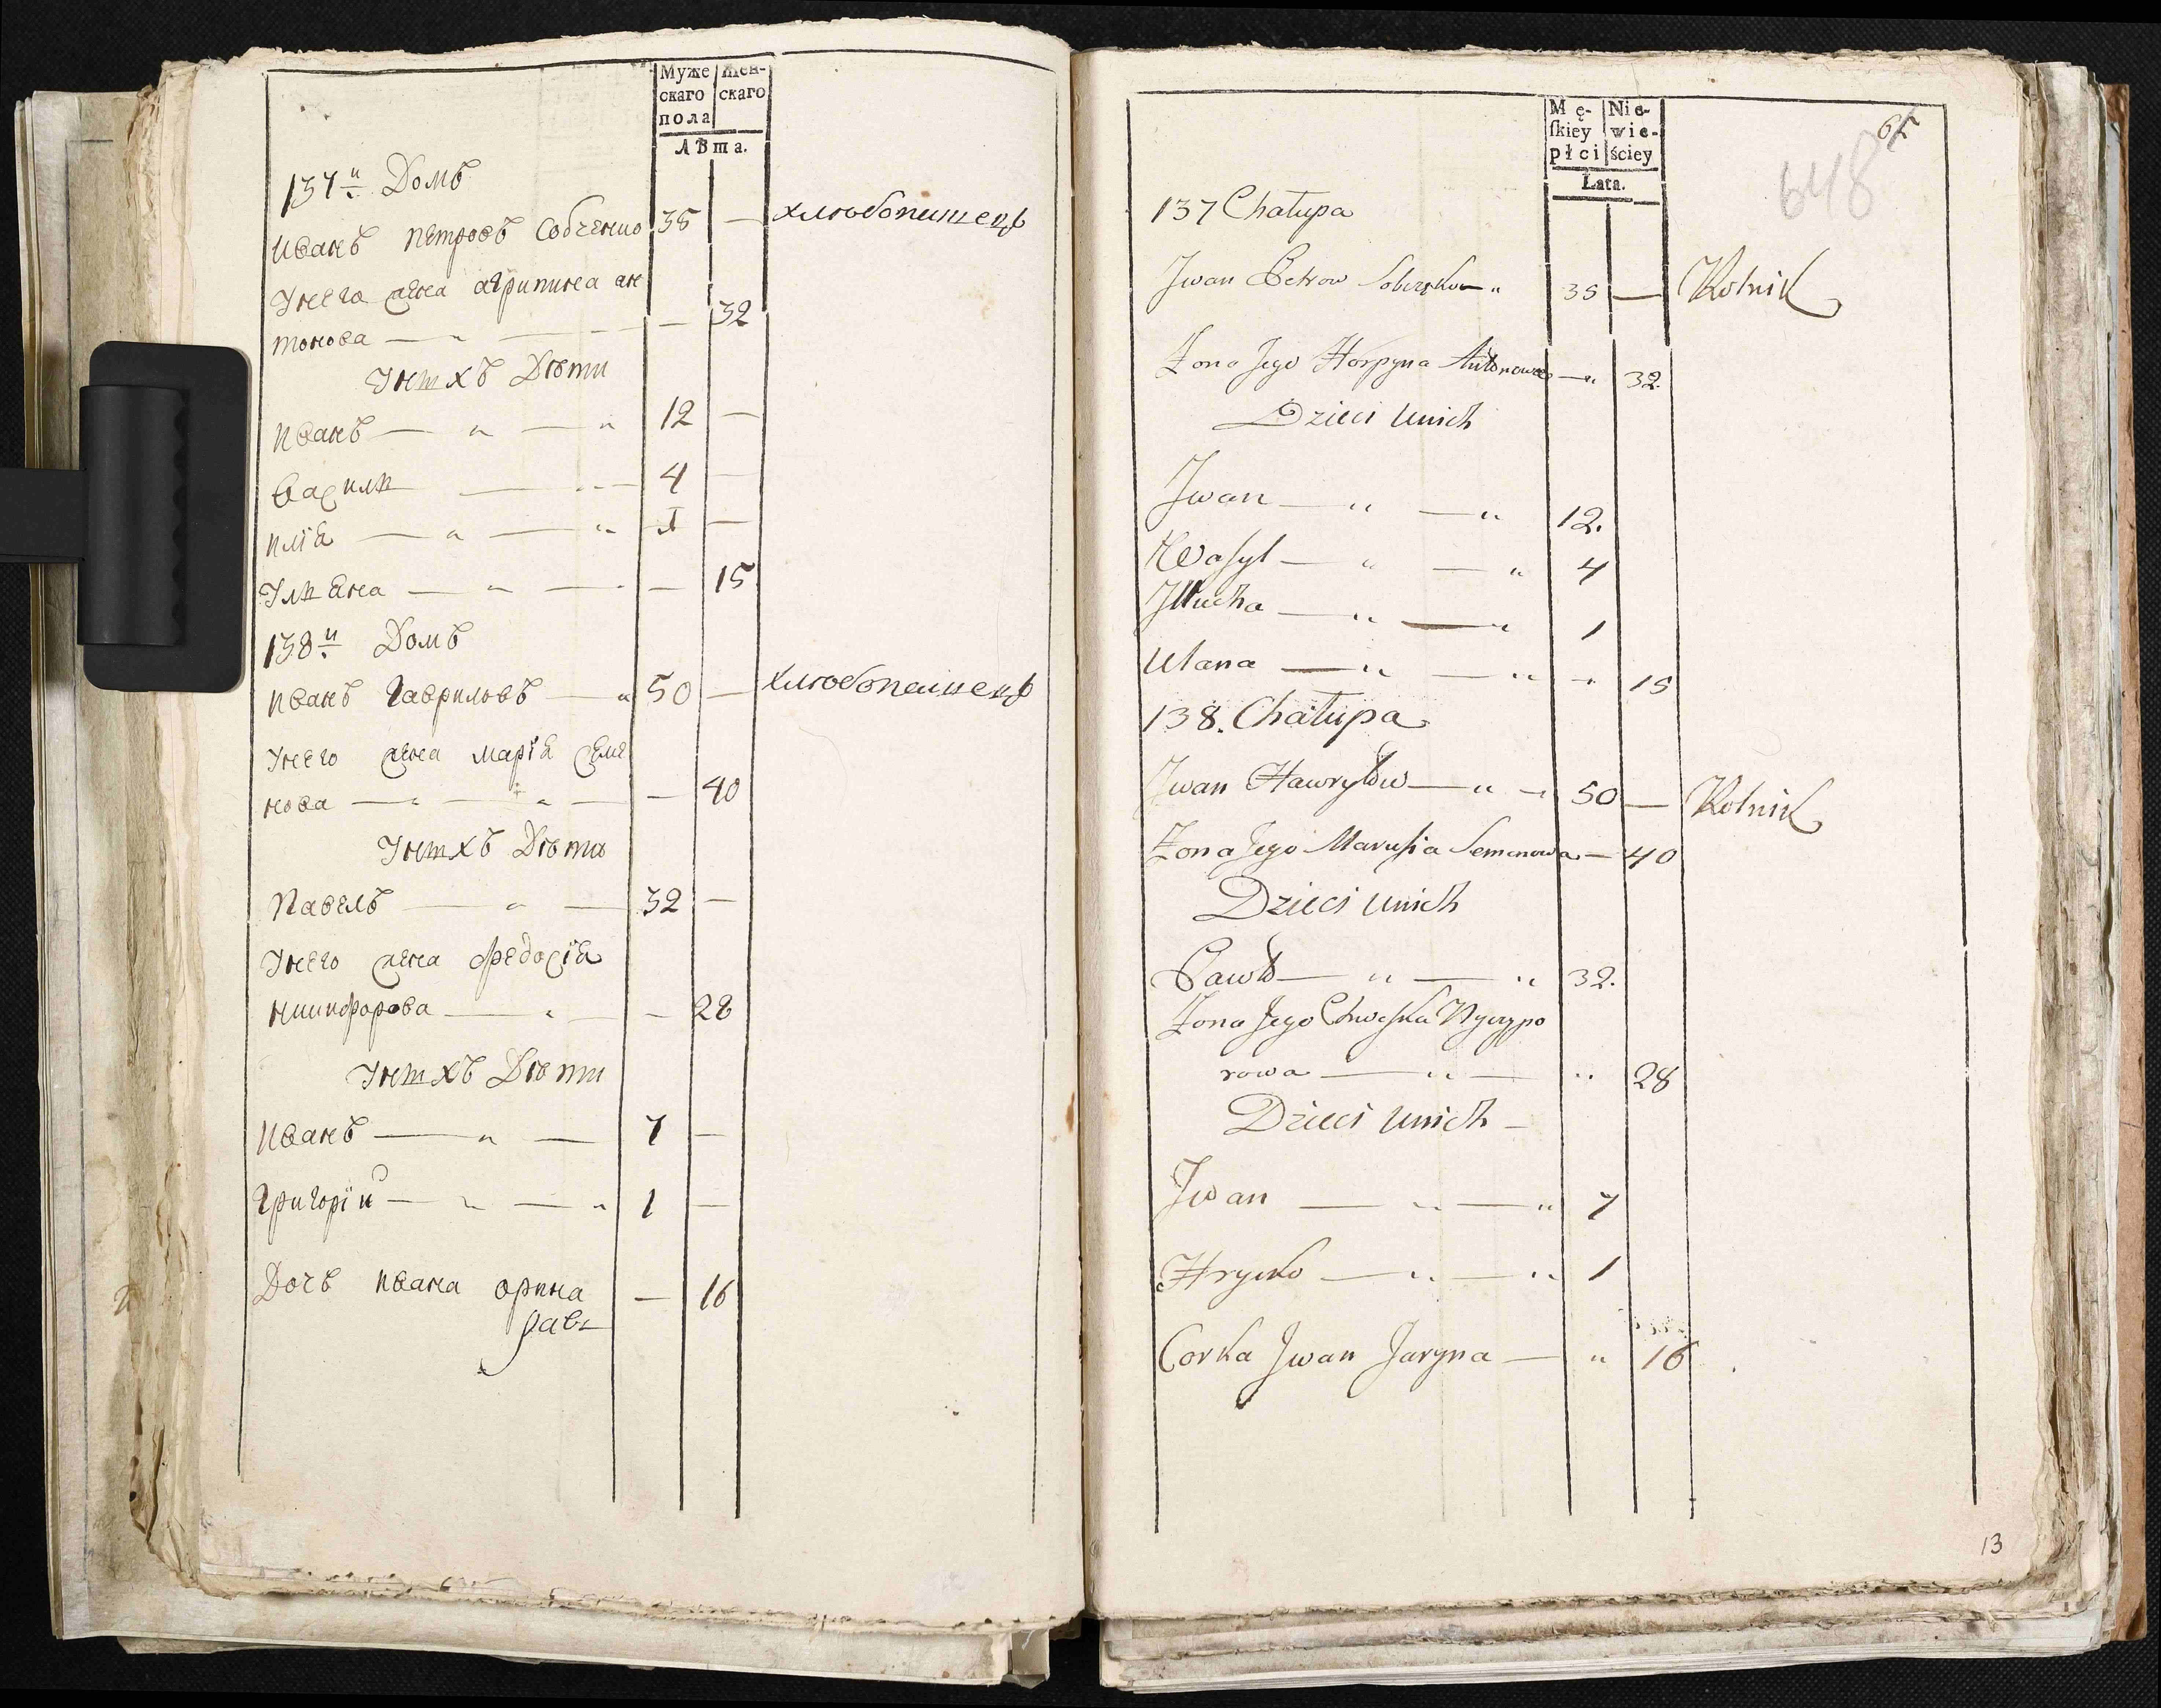 Муже Жен-
скаго скаго
пола
Лѣта.
137й Домъ
Иванъ Петровъ Собченко 35 — хлѣбопашецъ
Унего жена агрипина ан
тонова — „ — — 32
Унихъ Дѣти
Иванъ — „ — „ 12 —
Василй — — 4 —
Илія — „ — „ 1 —
Улияна — „ — — 15
138й Домъ
Иванъ Гавриловъ — „ 50 — хлѣбопашецъ
Унего жена Марія Семе
нова — „ — „ — — 40
Унихъ Дѣти
Павелъ — „ — 32 —
Унего жена Федосія
Никифорова — „ — — 28
Унихъ Дѣти
Иванъ — „ — 7 —
Григорій — „ — „ 1 —
Дочъ Ивана орина — 16
Mę- Nie-
ſkiey wie-
płci ściey
Lata.
65
648
137 Chałupa
Jwan Petrow Sobczenko — „ 35 — Rolnik
Zona Jego Horpyna Antonowa — „ 32.
Dzieci unich
Jwan — „ — „ 12.
Waſyl — „ — „ 4
Jllucha — „ — „ 1
Ulana — „ — „ „ 15
138. Chałupa
Jwan Hawryłow — „ — 50 — Rolnik
Zona Jego Maruſia Semenowa — 40
Dzieci unich
Pawło — „ — „ 32.
Zona Jego Chweſka Nyczypo
rowa — „ — „ 28
Dzieci unich —
Jwan — „ — „ 7
Hrycko — „ — „ 1
Corka Jwan Jaryna — „ 16
13